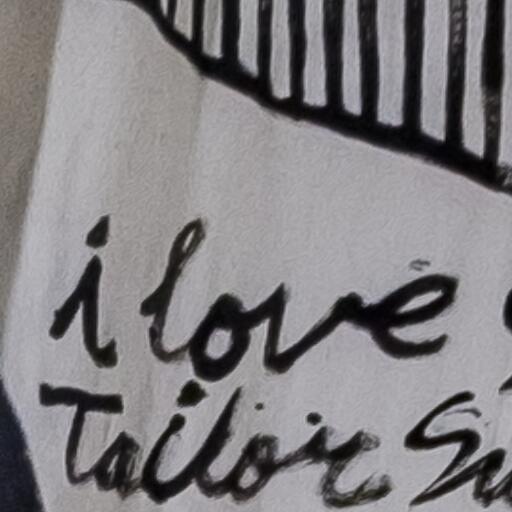 i love
Tailor